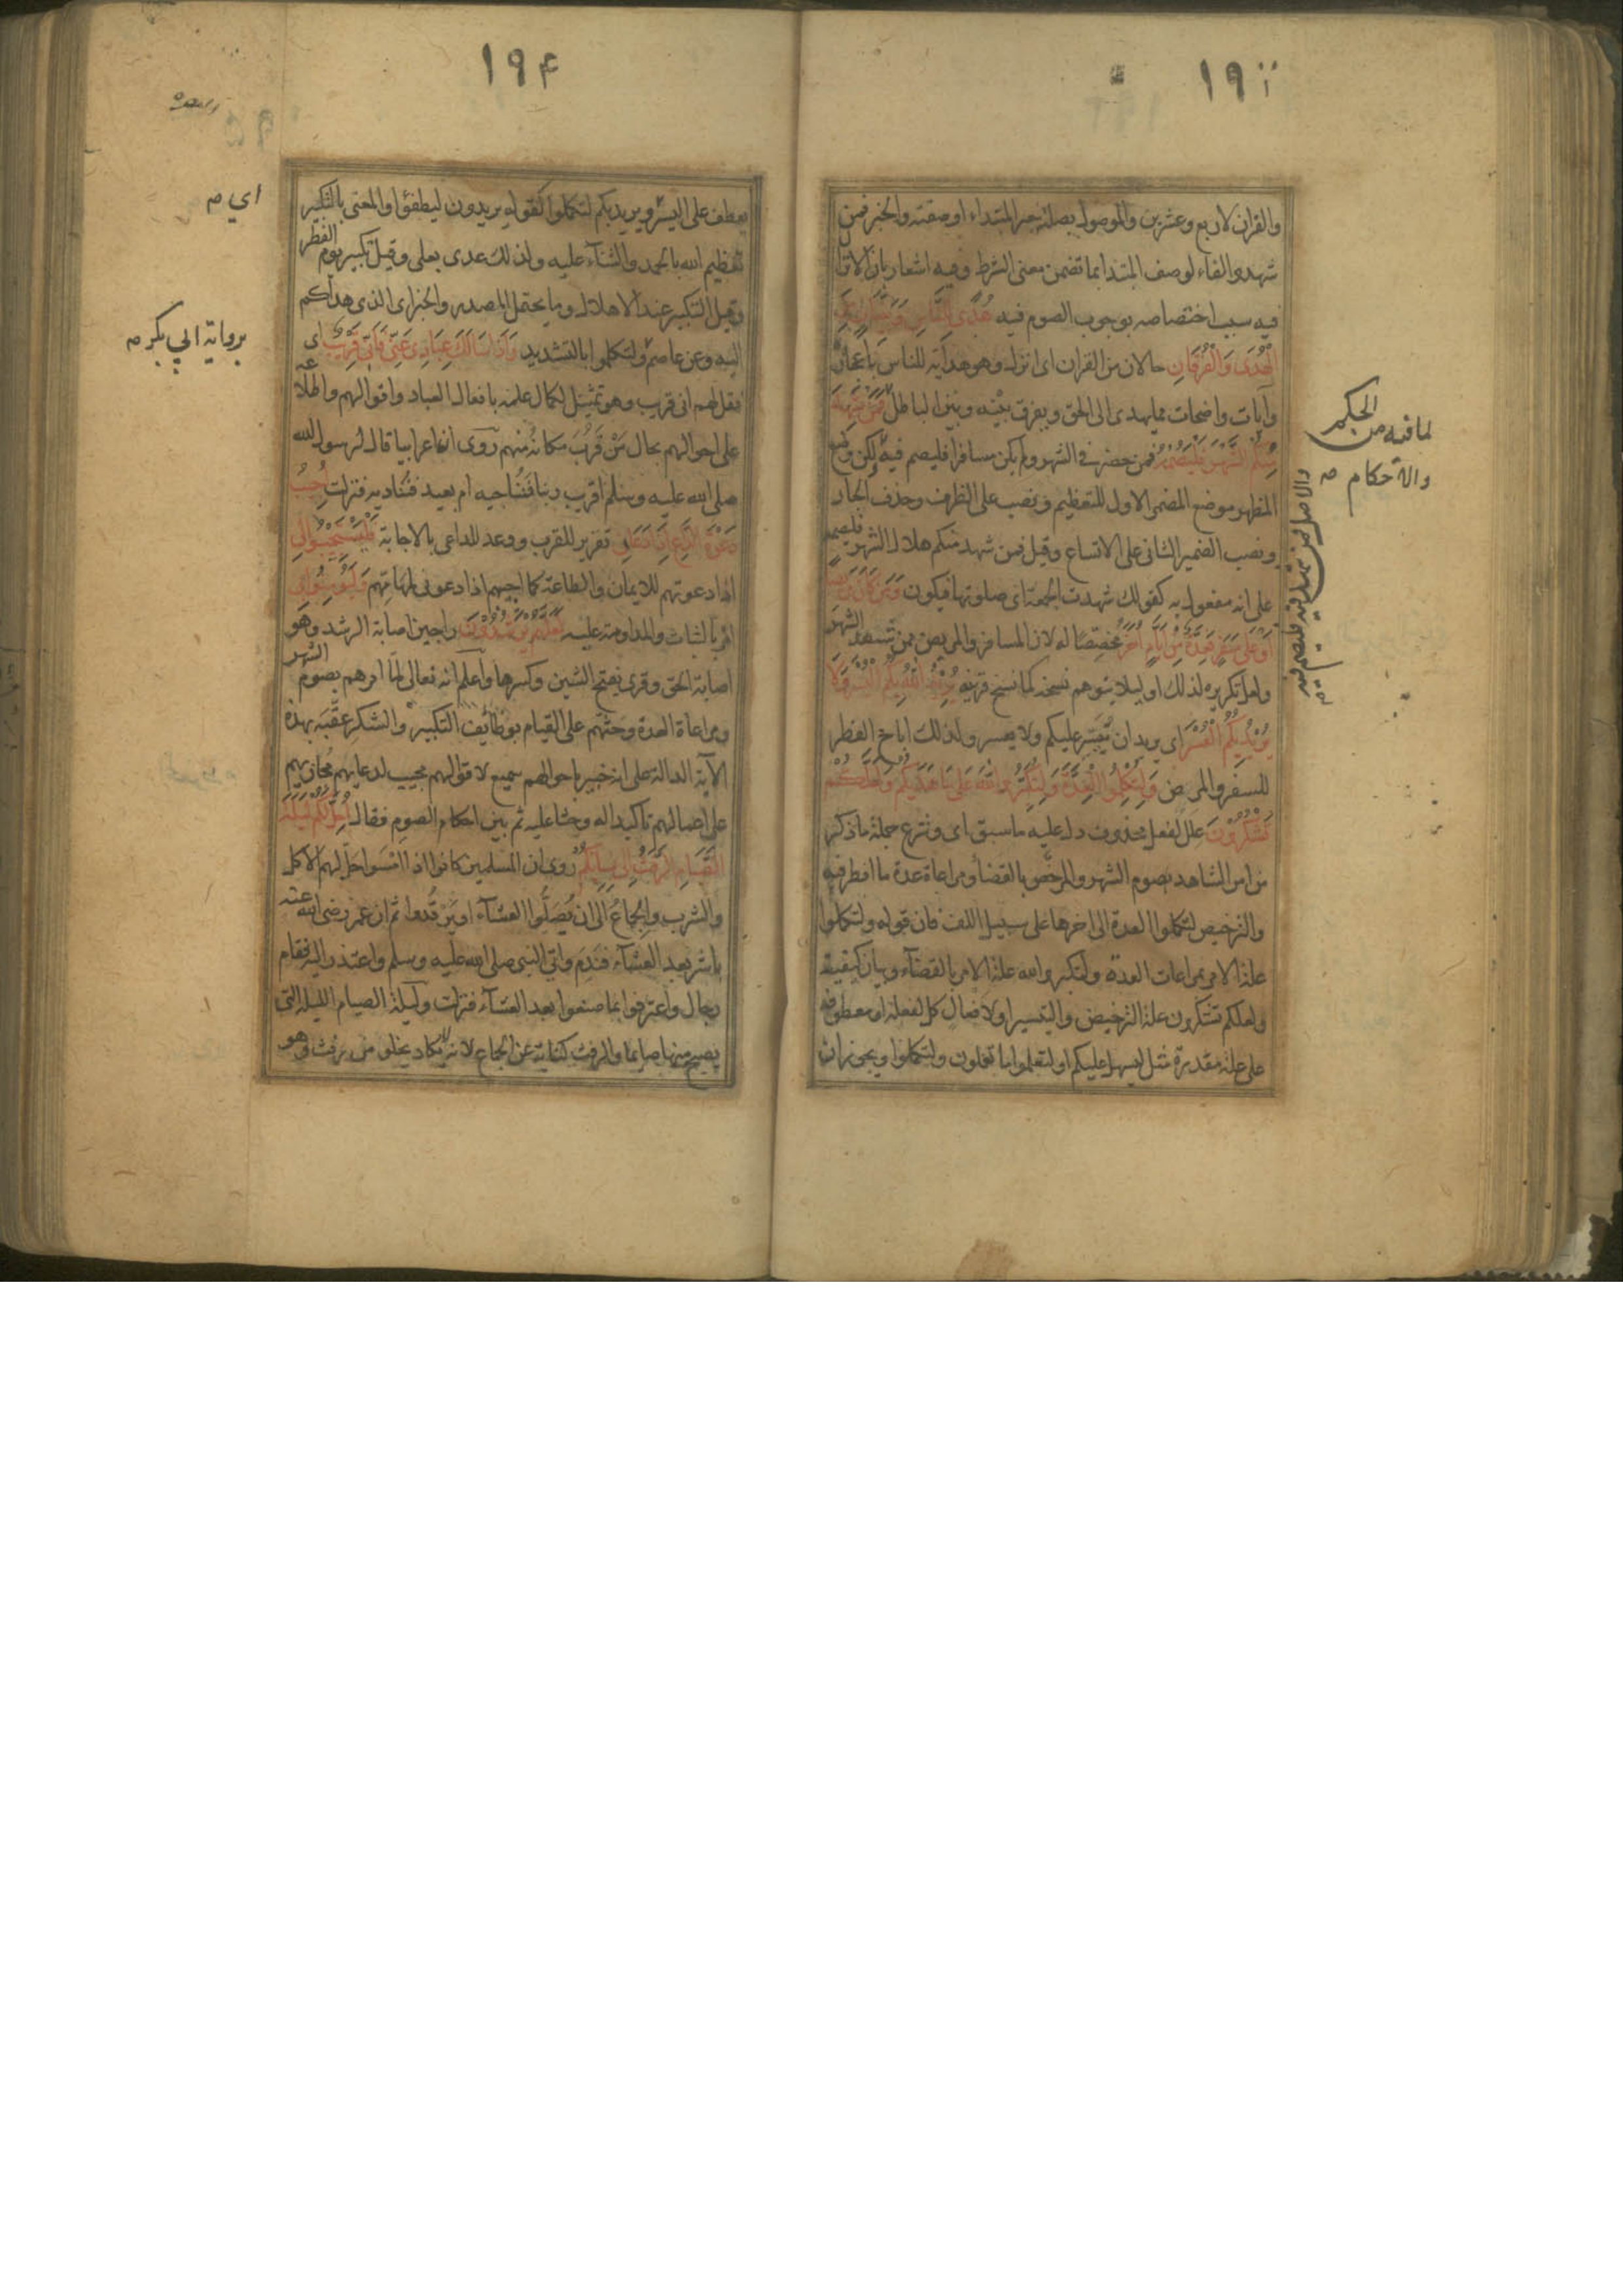 ١٩٣
والقران لاربع وعشرين والموصول بصلته خبر المبتداء او صفته والخبر فمن
شهد والفاء لوصف المبتدا بما تضمن معنى الشرط وفيه اشعار بان الانزال
فيه سبب اختصاصه بوجوب الصوم فيه هُدًى لِلنَّاسِ وَبَيِّنَاتٍ مِنَ
الْهُدَى وَالْفُرْقَانِ حالان من القران اى انزل وهو هداية للناس باعجازه
وآيات واضحات مما يهدى الى الحق ويفرق بينه وبين الباطل فَمَنْ شَهِدَ
مِنْكُمُ الشَّهْرَ فَلْيَصُمْهُ فمن حضر فى الشهر ولم يكن مسافرا فليصم فيه لكن وضع
المظهر موضع المضمر الاول للتعظيم ونصب على الظرف وحذف الجار
ونصب الضمير الثانى على الاتساع وقيل فمن شهد منكم هلال الشهر فليصمه
على انه مفعول به كقولك شهدت الجمعة اى صلوتها فيكون وَمَنْ كَانَ مَرِيضًا
اَوْ عَلَى سَفَرٍ فَعِدَّةٌ مِنْ اَيَّامٍ اُخَرَ مخصصًا له لان المسافر والمريض ممن شهد الشهر
ولعل تكريره لذلك او ليلا يتوهم نسخه كما نسخ قرينه يُرِيدُ اللَّهُ بِكُمُ الْيُسْرَ وَلَا
يُرِيدُ بِكُمُ الْعُسْرَ اى يريد ان ييسر عليكم ولا يعسر ولذلك اباح الفطر
للسفر والمرض وَلِتُكْمِلُوا الْعِدَّةَ وَلِتُكَبِّرُوا اللَّهَ عَلَى مَا هَدَيكُمْ وَلَعَلَّكُمْ
تَشْكُرُونَ علل لفعل محذوف دل عليه ما سبق اى وشرع جملة ما ذكر
من امر الشاهد بصوم الشهر والمرخص بالقضاء ومراعاة عدة ما افطر فيه
والترخيص لتكملوا العدة الى اخرها على سبيل اللف فان قوله ولتكملوا
علة الامر بمراعات العدة ولتكبروا الله علة الامر بالقضآء وبيان كيفيته
ولعلكم تشكرون علة الترخيص والتيسير او لافعال كل لفعله او معطوفة
على علة مقدرة مثل ليسهل عليكم او لتعلموا ما تعلون ولتكملوا ويجوز ان
لما فيه من الحكم
والاحكام صح
١٩۴
يعطف على اليسر ويريد بكم لتكملوا كقوله يريدون ليطفؤا والمعنى بالتكبير
تعظيم الله بالحمد والثنآء عليه ولذلك عدى بعلى وقيل تكبير يوم الفطر
وقيل التكبير عند الاهلال وما يحتمل المصدر والخبر اى الذى هداكم
اليه وعن عاصم ولتكملوا بالتشديد وَاِذَا سَاَلَكَ عِبَادِى عَنِّى فَاِنِّى قَرِيبٌ اى
فقل لهم انى قريب وهو تمثيل لكمال علمه بافعال العباد واقوالهم واطلاعه
على احوالهم بحال مَنْ قَرُبَ مكانُه منهم روى ان اعرابيا قال لرسول الله
صلى الله عليه وسلم اقريب ربنا فنناجيه ام بعيد فنناديه فنزلت اُجِيبُ
دَعْوَةَ الدَّاعِ اِذَا دَعَانِ تقرير للقرب ووعد للداعى بالاجابة فَلْيَسْتَجِيبُوا لِى
اذا دعوتهم للايمان والطاعة كما اجيبهم اذا دعونى لمهامّهم وَلْيُؤْمِنُوا بِى
امر بالثبات والمداومة عليه لَعَلَّهُمْ يَرْشُدُونَ راجين اصابة الرشد وهو
اصابة الحق وقرئ بفتح الشين وكسرها واعلم انه تعالى لمّا امرهم بصوم الشهر
ومراعاة العدة وحثهم على القيام بوظائف التكبير والشكر عقّبه بهذه
الآية الدالة على انه خبير باحوالهم سميع لاقوالهم مجيب لدعايهم مجازيهم
على اعمالهم تاكيدا له وحثا عليه ثم بين احكام الصوم فقال اُحِلَّ لَكُمْ لَيْلَةَ
الصِّيَامِ الرَّفَثُ اِلَى نِسَائِكُمْ روى ان المسلمين كانوا اذا امسوا حلّ لهم الاكل
والشرب والجماعُ الى ان يُصَلُّوا العشآء او يَرْقُدوا ثم ان عمر رضى الله عنه
باشر بعد العشآء فندم واتى النبى صلى الله عليه وسلم واعتذر اليه فقام
رجال واعترفوا بما صنعوا بعد العشآء فنزلت وليلة الصيام الليلة التى
يصبح منها صايما والرفث كناية عن الجماع لانه لا يكاد يخلو من رفث وهو
اي صح
برواية ابي بكر صح